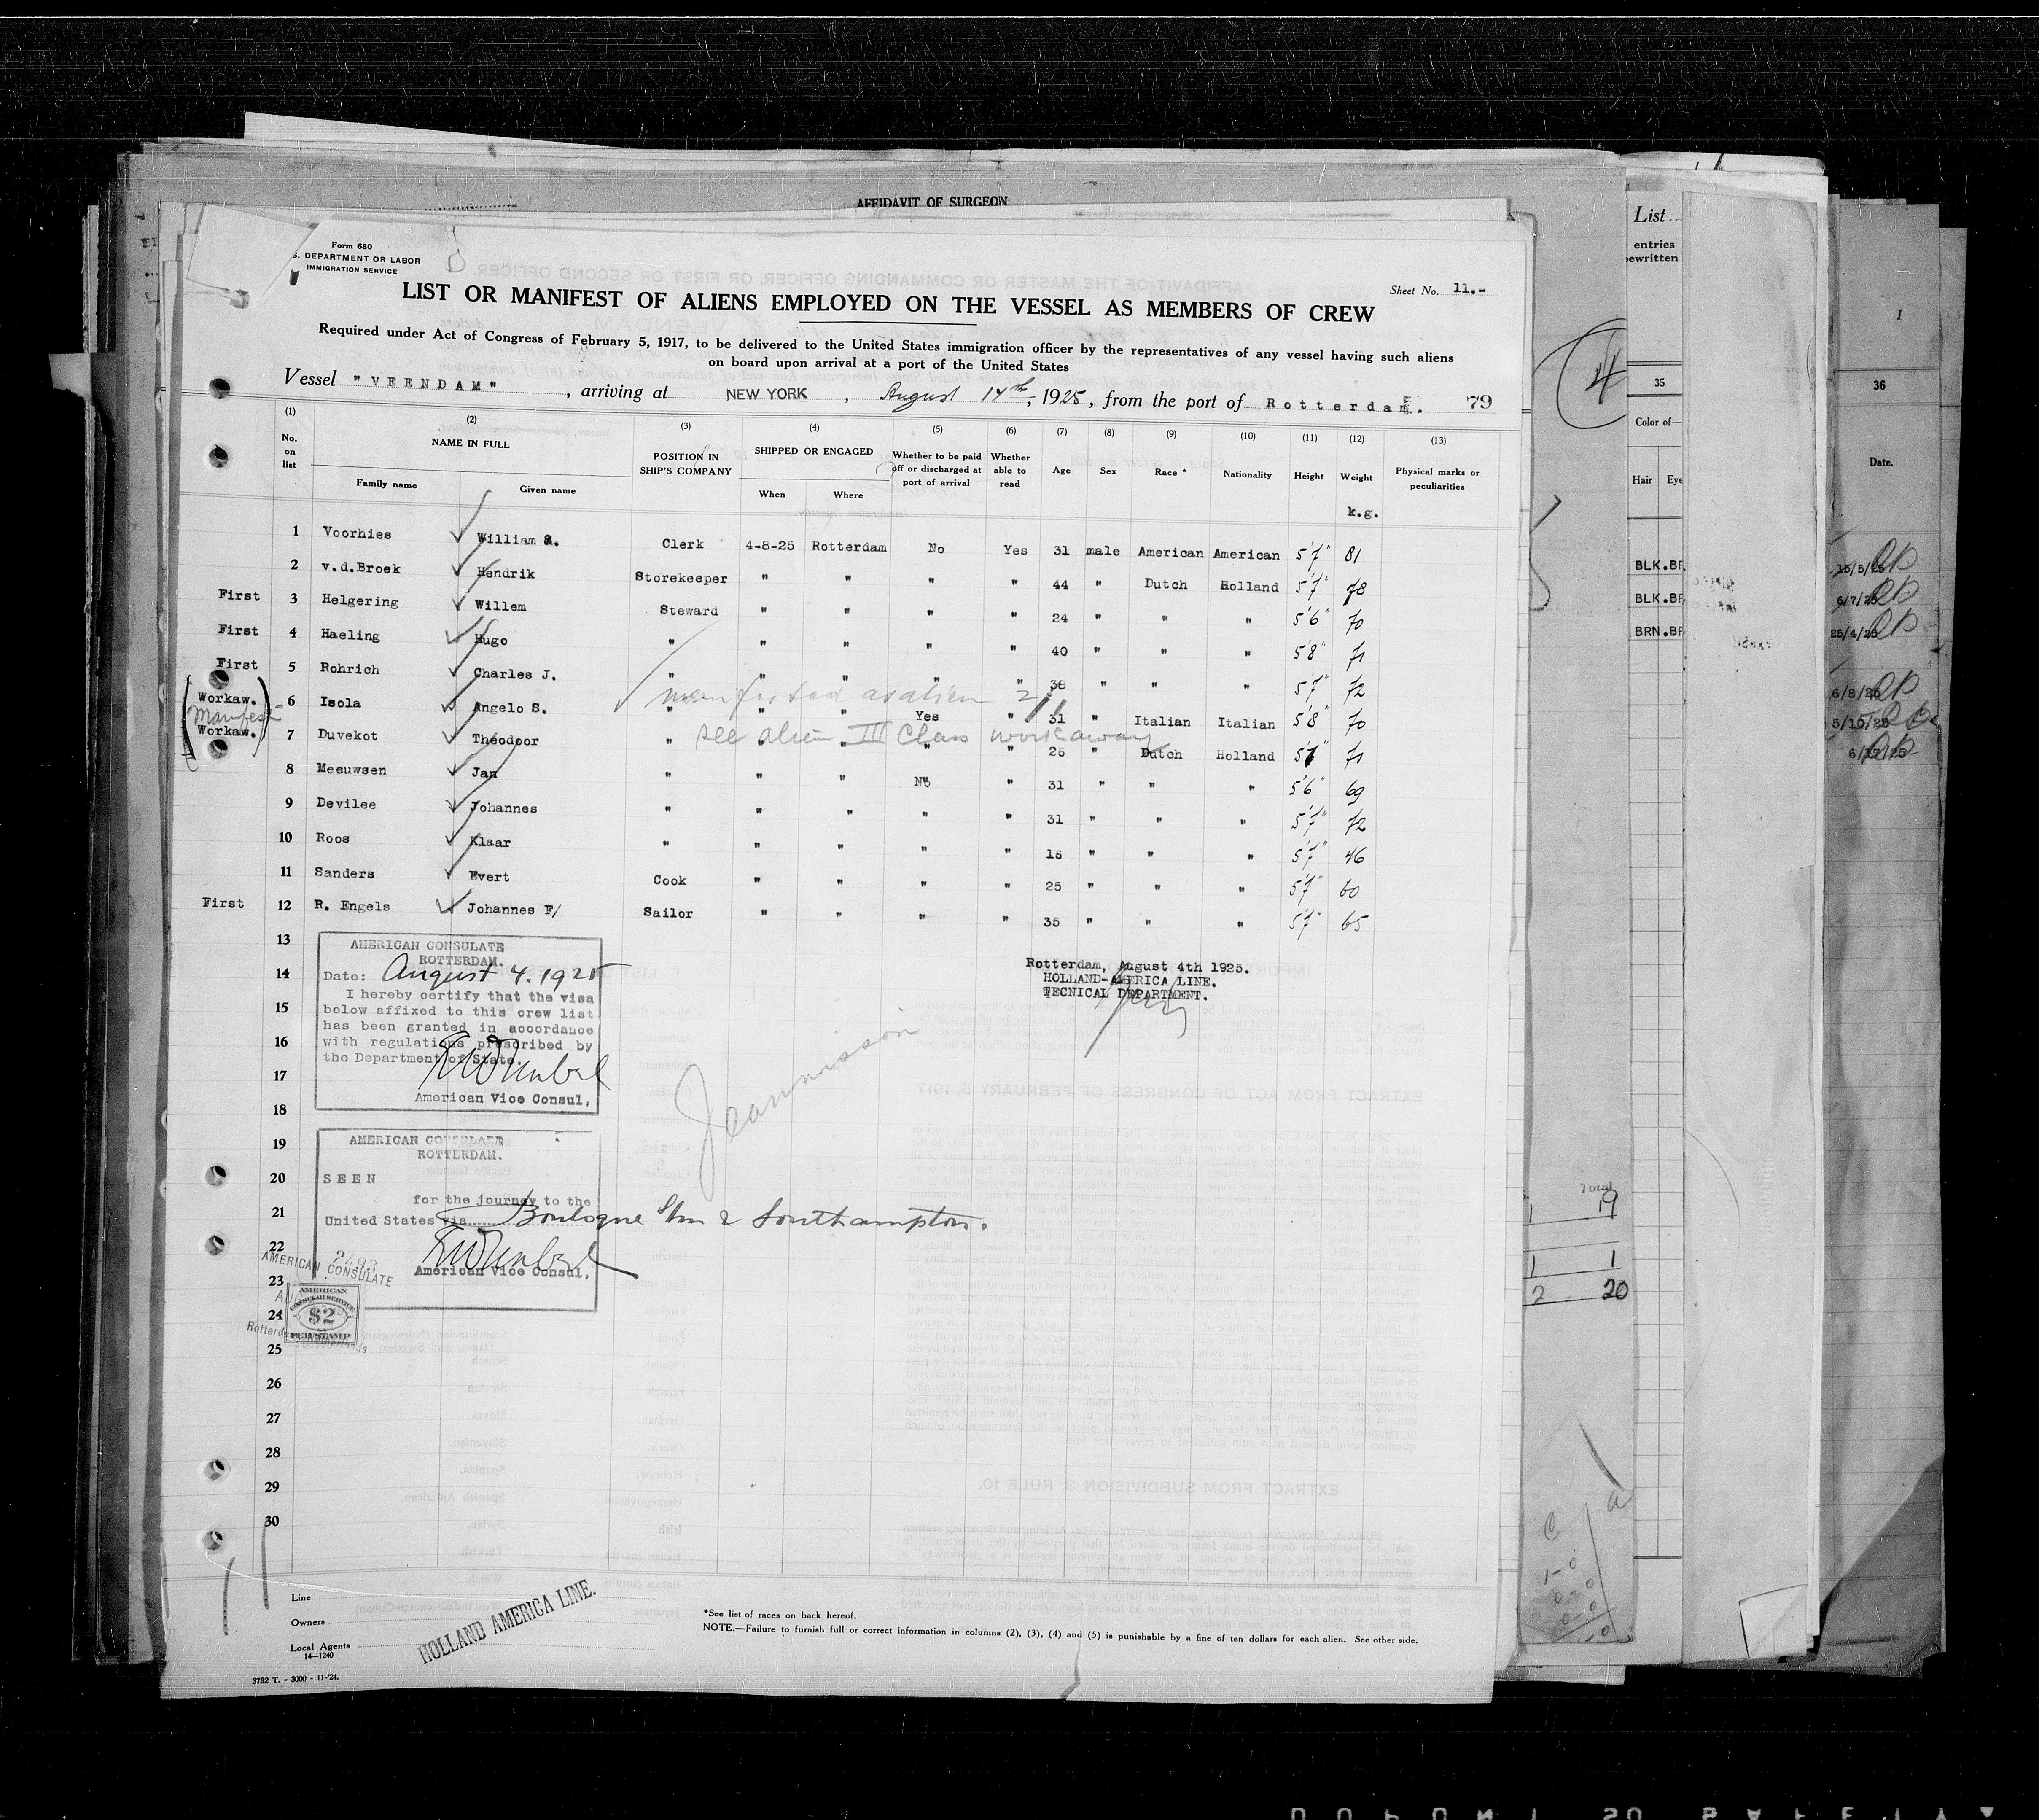 AFFIDAVIT OF SURGEON
Form 680
S. DEPARTMENT OR LABOR
IMMIGRATION SERVICE
Sheet No. 11.-
LIST OR MANIFEST OF ALIENS EMPLOYED ON THE VESSEL AS MEMBERS OF CREW
Required under Act of Congress of February 5, 1917, to be delivered to the United States immigration officer by the representatives of any vessel having such aliens
on board upon arrival at a port of the United States
Vessel "VEENDAM", arriving at NEW YORK, August 14th, 1925, from the port of Rotterdam. 79
(1) (2) (3) (4) (5) (6) (7) (8) (9) (10) (11) (12) (13)
No. on list NAME IN FULL POSITION IN SHIP'S COMPANY SHIPPED OR ENGAGED Whether to be paid off or discharged at port of arrival Whether able to read Age Sex Race * Nationality Height Weight Physical marks or peculiarities
Family name Given name When Where
k.g.
1 Voorhies William S. Clerk 4-8-25 Rotterdam No Yes 31 male American American 5'7" 81
2 v.d.Broek Hendrik Storekeeper " " " " 44 " Dutch Holland 5'7" 78
First 3 Helgering Willem Steward " " " " 24 " " " 5'6" 70
First 4 Haeling Hugo " " " " " 40 " " " 5'8" 71
First 5 Rohrich Charles J. " " " " " 38 " " " 5'7" 72
manifested as alien
Workaw. 6 Isola Angelo S. " " " Yes " 31 " Italian Italian 5'8" 70
Manifest
see alien III Class workaway
Workaw. 7 Duvekot Theodoor " " " " " 26 " Dutch Holland 5'7" 71
8 Meeuwsen Jan " " " No " 31 " " " 5'6" 69
9 Devilee Johannes " " " " " 31 " " " 5'7" 72
10 Roos Klaar " " " " " 16 " " " 5'7" 46
11 Sanders Evert Cook " " " " 25 " " " 5'7" 60
First 12 R. Engels Johannes F/ Sailor " " " " 35 " " " 5'7" 65
13
14
15
16
17
18
19
20
21
22
23
24
25
26
27
28
29
30
AMERICAN CONSULATE
ROTTERDAM.
Date: August 4. 1925
I hereby certify that the visa
below affixed to this crew list
has been granted in accordance
with regulations prescribed by
the Department of State.
American Vice Consul,
Rotterdam, August 4th 1925.
HOLLAND-AMERICA LINE.
TECNICAL DEPARTMENT.
AMERICAN CONSULATE
ROTTERDAM.
SEEN
for the journey to the
United States via Boulogne S/m & Southampton.
American Vice Consul,
AMERICAN CONSULATE
AMERICAN
CONSULAR SERVICE
$2
FEE STAMP
Line
Owners
Local Agents
14-1240
HOLLAND AMERICA LINE.
*See list of races on back hereof.
NOTE.—Failure to furnish full or correct information in columns (2), (3), (4) and (5) is punishable by a fine of ten dollars for each alien. See other side.
3732 T. - 3000 - 11-'24.
4
Total
19
1 1
2 20
List
entries
35
Color of—
Hair Eye
BLK.
BLK.
BRN.
36
Date.
15/5/25
6/7/25
25/4/25